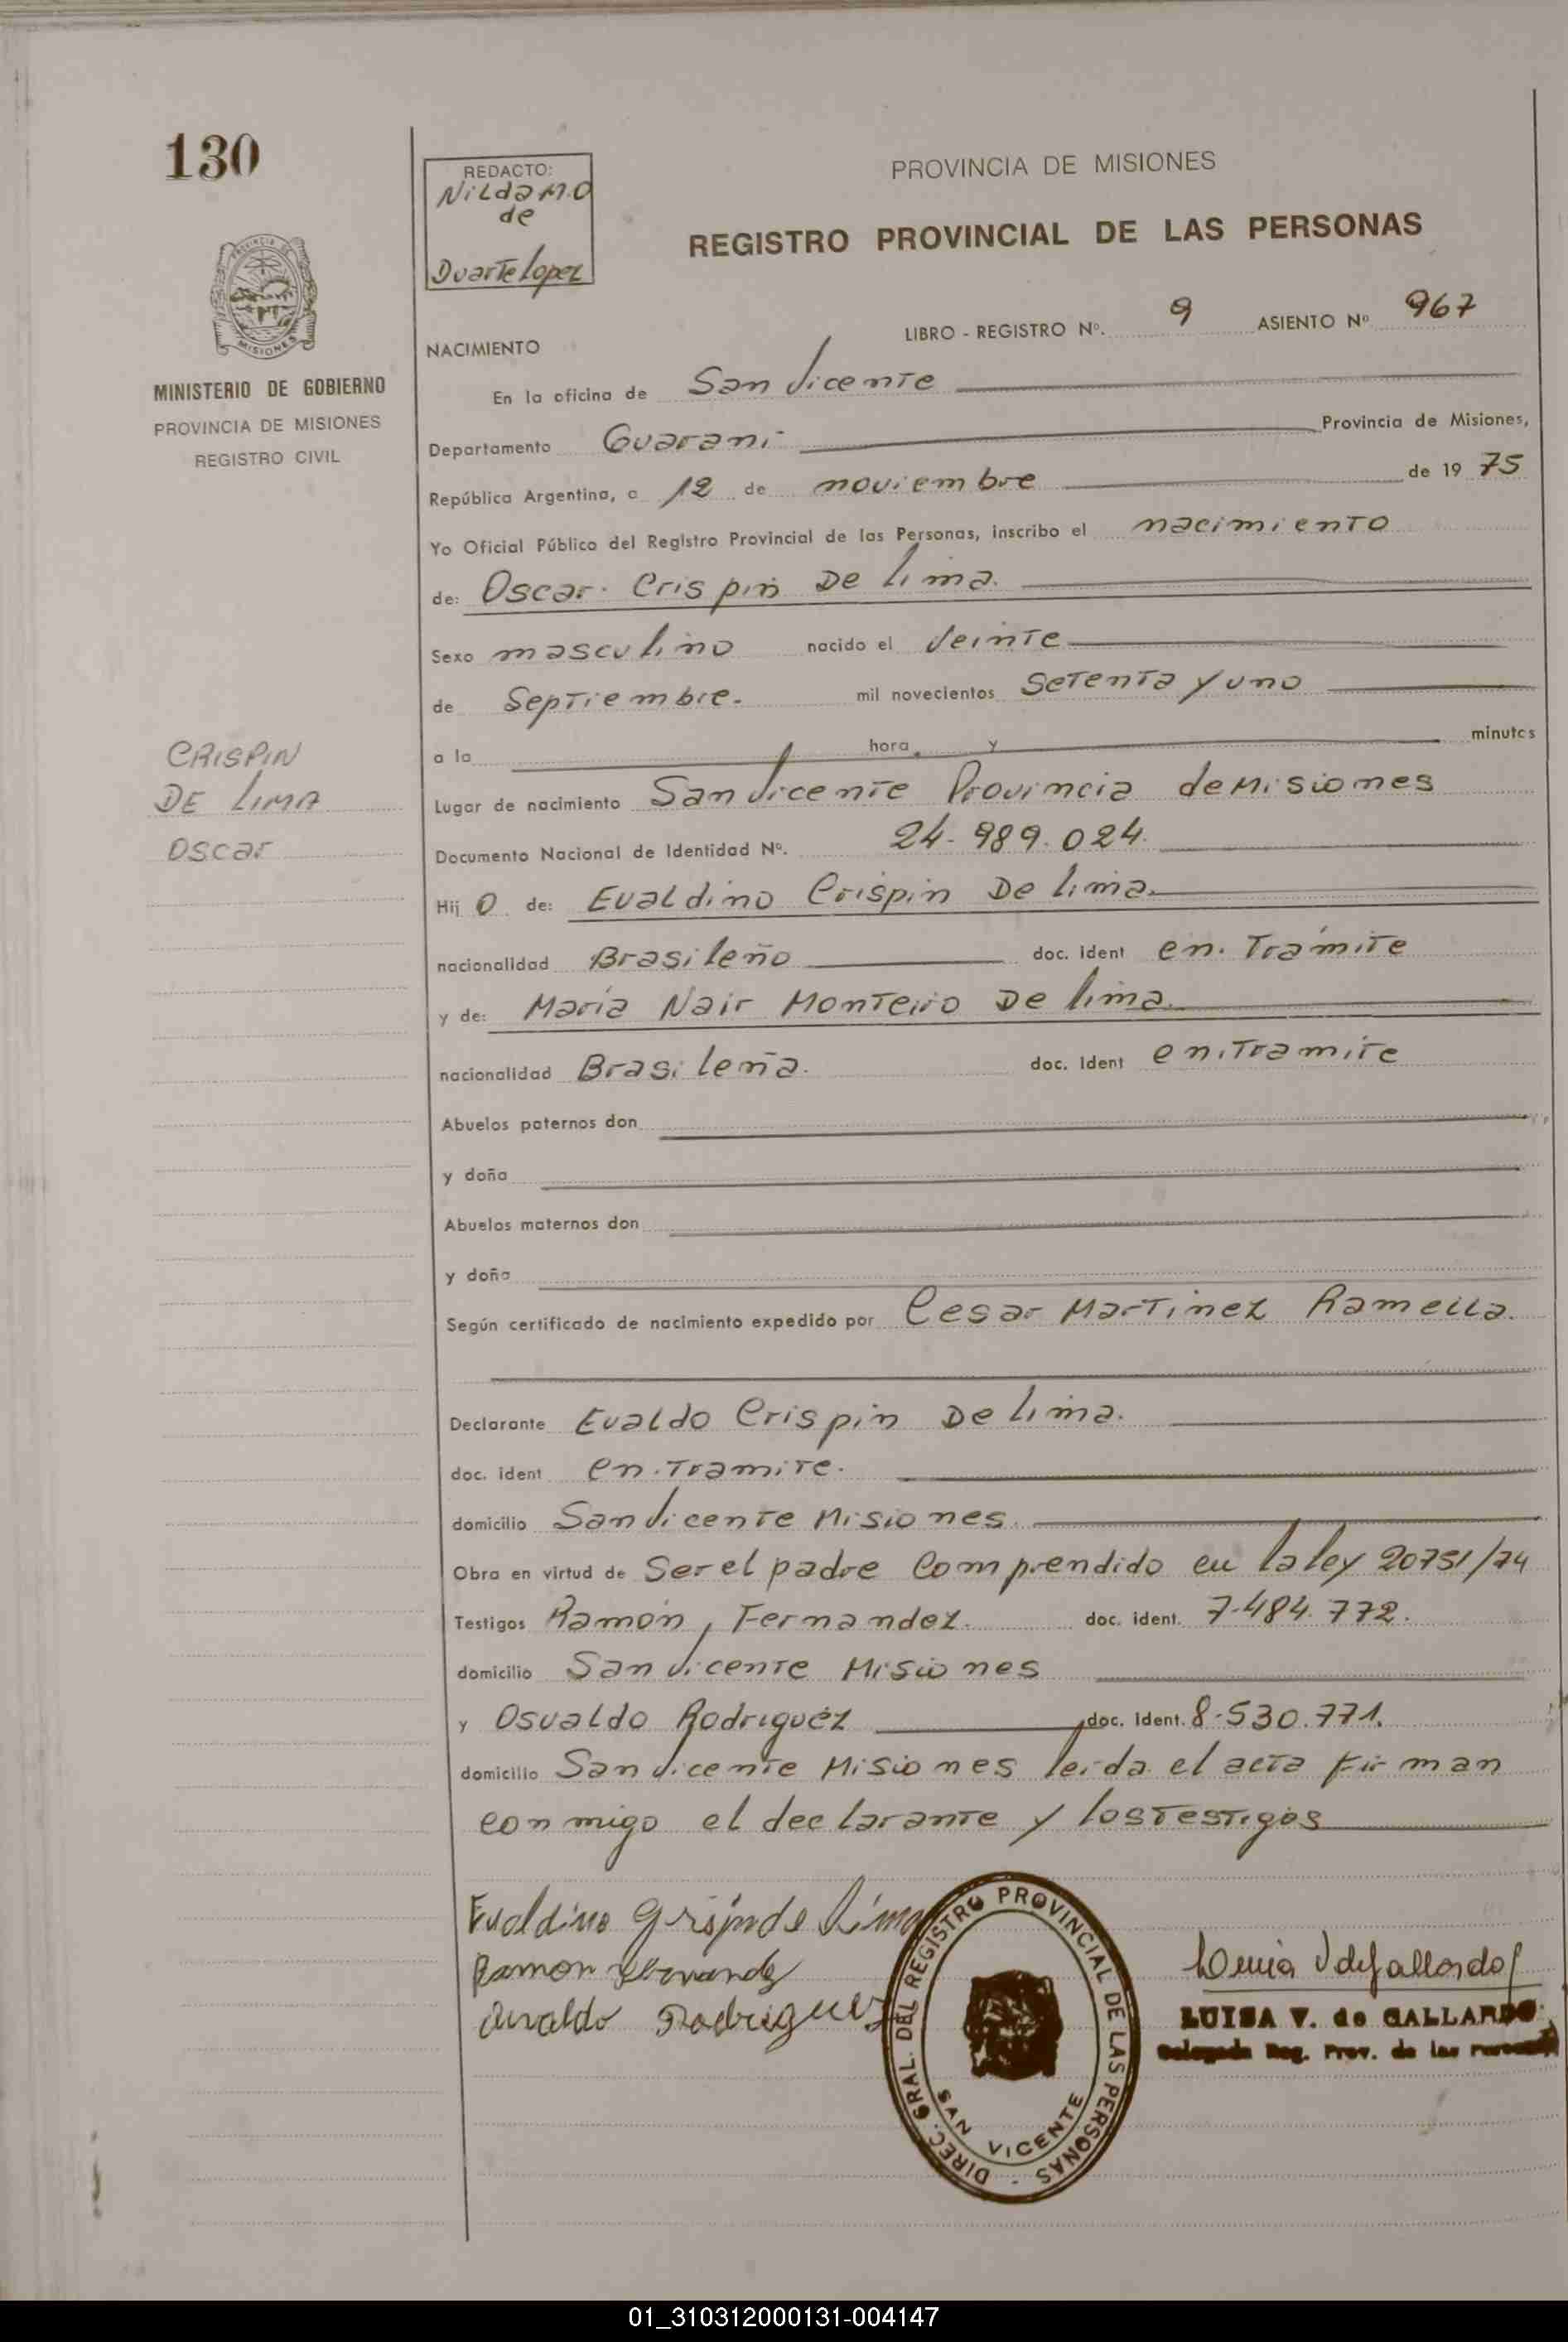 130
REDACTO:
Nilda M. O
de
Duarte Lopez
PROVINCIA DE MISIONES
REGISTRO PROVINCIAL DE LAS PERSONAS
PROVINCIA DE
MISIONES
MINISTERIO DE GOBIERNO
PROVINCIA DE MISIONES
REGISTRO CIVIL
LIBRO - REGISTRO Nº. 9 ASIENTO Nº 967
NACIMIENTO
En la oficina de San Vicente
Departamento Guarani Provincia de Misiones,
República Argentina, a 12 de noviembre de 1975
Yo Oficial Público del Registro Provincial de las Personas, inscribo el nacimiento
de: Oscar. Crispin De Lima.
Sexo masculino nacido el Veinte
de Septiembre. mil novecientos Setenta y uno
a la hora y minutos
CRISPIN
DE LIMA
Oscar
Lugar de nacimiento San Vicente Provincia de Misiones
Documento Nacional de Identidad Nº. 24.989.024.
Hij o de: Evaldino Crispin De Lima.
nacionalidad Brasileño doc. ident en. Trámite
y de: María Nair Monteiro De Lima.
nacionalidad Brasileña. doc. ident en. Tramite
Abuelos paternos don
y doña
Abuelos maternos don
y doña
Según certificado de nacimiento expedido por Cesar Martinez Ramella.
Declarante Evaldo Crispin De Lima.
doc. ident en. Tramite.
domicilio San Vicente Misiones.
Obra en virtud de Ser el padre Comprendido en la ley 20751/74
Testigos Ramón, Fernandez. doc. ident. 7.484.772.
domicilio San Vicente Misiones
y Osvaldo Rodriguéz doc. ident. 8.530.771.
domicilio San Vicente Misiones leida el acta firman
conmigo el declarante y los Testigos
Evaldino Grispin de Lima
Ramon Fernandez
Osvaldo Rodriguez
DIREC. GRAL. DEL REGISTRO PROVINCIAL DE LAS PERSONAS -
SAN VICENTE
LUISA V. de GALLARDO
Delegada Reg. Prov. de las Personas
01_310312000131-004147